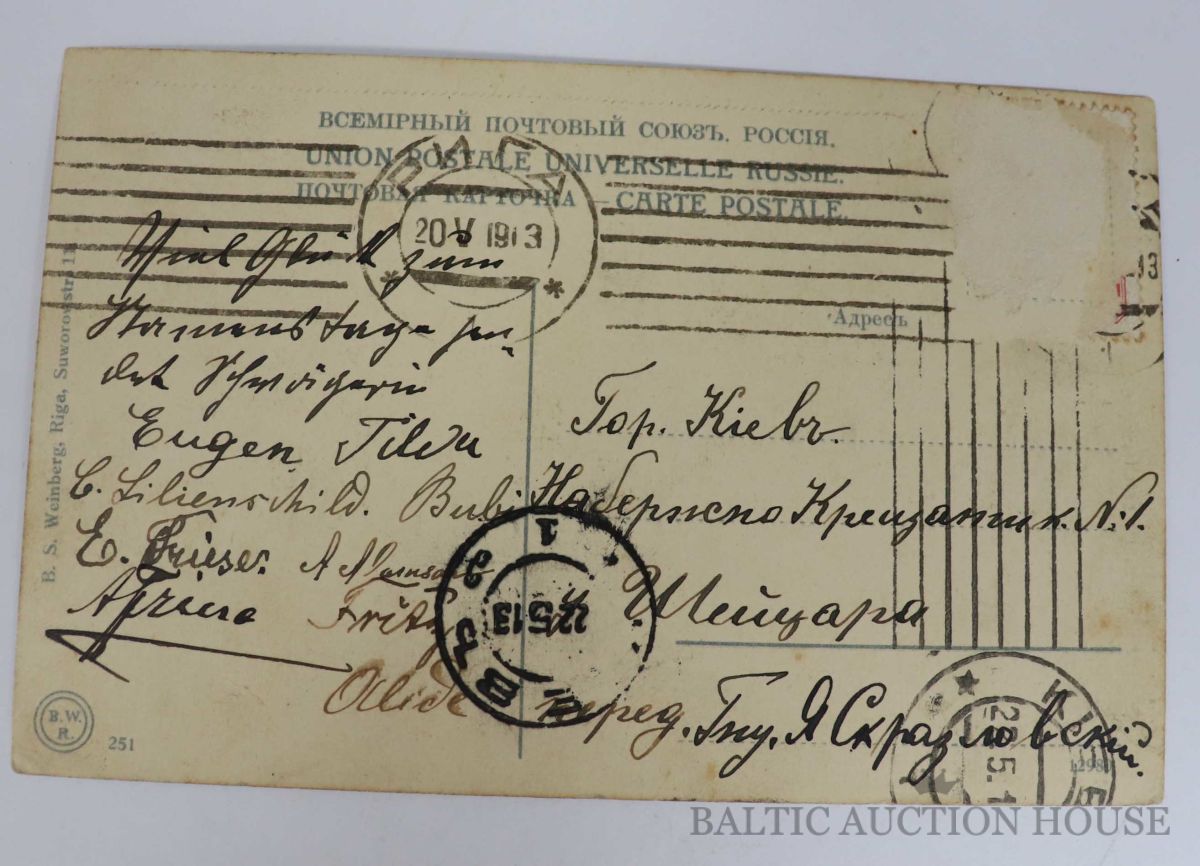 ВСЕМІРНЫЙ ПОЧТОВЫЙ СОЮЗЪ. РОССІЯ.
UNION POSTALE UNIVERSELLE RUSSIE.
ПОЧТОВАЯ КАРТОЧКА — CARTE POSTALE.
РИГА
20 V 1913
13
Адресъ
Viel Glück zum
Namenstage sen-
det Schwägerin
Eugen Tilda
E. Lilienschild. Bubi
E. Frieser.
Fritz
Alide
Гор. Кіевъ.
Набережно Крещатик. №1.
Г. Шейцари
перед. Гну. Я
22 5 13
КІЕВЪ
1
КІЕВ
B. S. Weinberg, Riga, Suworowstr. 11.
B.W.
R.
251
BALTIC AUCTION HOUSE